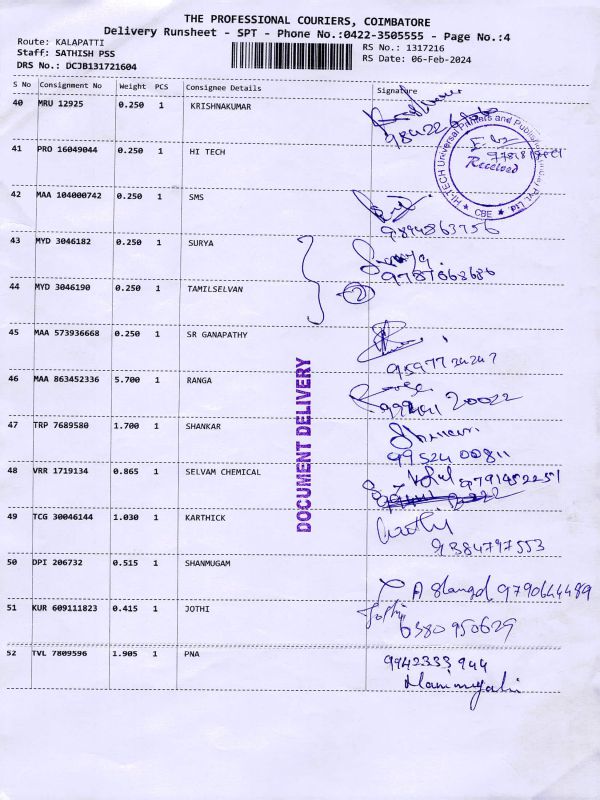 THE PROFESSIONAL COURIERS, COIMBATORE
Delivery Runsheet - SPT - Phone No.:0422-3505555 - Page No.:4
Route: KALAPATTI
Staff: SATHISH PSS
DRS No.: DCJB131721604
RS No.: 1317216
RS Date: 06-Feb-2024
S No Consignment No Weight PCS Consignee Details Signature
40 MRU 12925 0.250 1 KRISHNAKUMAR
41 PRO 16049044 0.250 1 HI TECH
Received
CBE
42 MAA 104000742 0.250 1 SMS
9894863756
43 MYD 3046182 0.250 1 SURYA
Surya
9787068686
44 MYD 3046190 0.250 1 TAMILSELVAN
2
45 MAA 573936668 0.250 1 SR GANAPATHY
9597724247
46 MAA 863452336 5.700 1 RANGA
20022
47 TRP 7689580 1.700 1 SHANKAR
9952400811
48 VRR 1719134 0.865 1 SELVAM CHEMICAL
9791452251
49 TCG 30046144 1.030 1 KARTHICK
9384797553
50 DPI 206732 0.515 1 SHANMUGAM
9790644489
51 KUR 609111823 0.415 1 JOTHI
Jothi
6380950629
52 TVL 7809596 1.905 1 PNA
9942333944
DOCUMENT DELIVERY